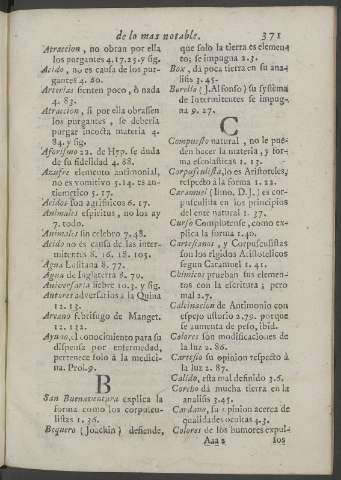 de lo mas notable. 371
Atraccion, no obran por ella
los purgantes 4.17.25. y sig.
Acido, no es causa de los pur-
gantes 4. 20.
Arterias sienten poco, ò nada
4. 83.
Atraccion, si por ella obrassen
los purgantes, se debería
purgar incocta materia 4.
84. y sig.
Aforismo 22. de Hyp. se duda
de su fidelidad 4. 68.
Azufre elemento antimonial,
no es vomitivo 5.14. es an-
tiemetico 5.17.
Acidos son agrificos 6. 17.
Animales espiritus, no los ay
7. todo.
Animales sin celebro 7.48.
Acido no es causa de las inter-
mitentes 8. 16. 18. 105.
Agua Lositana 8. 77.
Agua de Inglaterra 8. 70.
Aniversaria fiebre 10.3. y sig.
Autores adversarios à la Quina
12. 13.
Arcano febrifugo de Manget.
12. 112.
Ayuno, el conocimiento para su
dispensa por enfermedad,
pertenece solo à la medici-
na. Prol.9.
B
San Buenaventura explica la
forma como los corpuscu-
listas 1.36.
Bequero (Joackin) desiende,
que solo la tierra es elemen-
to; se impugna 2.3.
Box, dà poca tierra en su ana-
lisis 3.45.
Borella (J. Alfonso) su systema
de Intermitentes se impug-
na 9. 27.
C
Compuesto natural, no le pue-
den hacer la materia, y for-
ma escolasticas 1. 13.
Corpusculista, lo es Aristoteles,
respecto à la forma 1.22.
Caramuel (Ilmo. D. J.) es cor-
pusculista en los principios
del ente natural 1. 37.
Curso Complutense, como ex-
plica la forma 1.40.
Cartesianos, y Corpusculistas
son los rigidos Aristotelicos
segun Caramuel 1.41.
Chimicos prueban sus elemen-
tos con la escritura; pero
mal 2.7.
Calcinacion de Antimonio con
espejo ustorio 2.79. porque
se aumenta de peso, ibid.
Colores son modificaciones de
la luz 2. 86.
Cartesio su opinion respecto à
la luz 2. 87.
Calido, esta mal definido 3.6.
Corcho dà mucha tierra en la
analisis 3.45.
Cardano, su opinion acerca de
qualidades ocultas 4.3.
Colores de los humores expul-
Aaa 2 sos